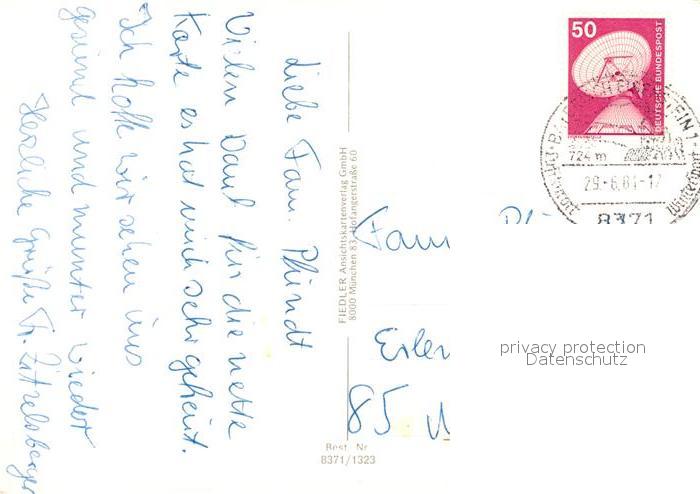 Liebe Fam. Pfundt
Vielen Dank für die nette
Karte es hat mich sehr gefreut.
Ich hoffe wir sehen uns
gesund und munter wieder
Herzliche Grüße Fr. Zitzelsberger
FIEDLER Ansichtskartenverlag GmbH
8000 München 83, Hofangerstraße 60
Best. Nr.
8371/1323
50
DEUTSCHE BUNDESPOST
724 m
29.-6.81-17
8371
Fam
Erlen
85
privacy protection
Datenschutz